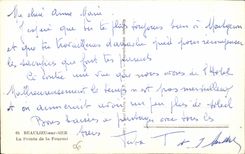 Ma chère Anne Marie
que tu te plais toujours bien à
et que tu travailles d'arrache pied pour récompenser
les sacrifices que font tes parents
Ce conte une vue que nous avons de l'Hôtel
Malheureusement le temps n'est pas merveilleux
et on aimerait avoir un peu plus de soleil
Bons baisers à partager avec tous les
tiens
85 BEAULIEU-sur-MER
La Pointe de la Fourmi